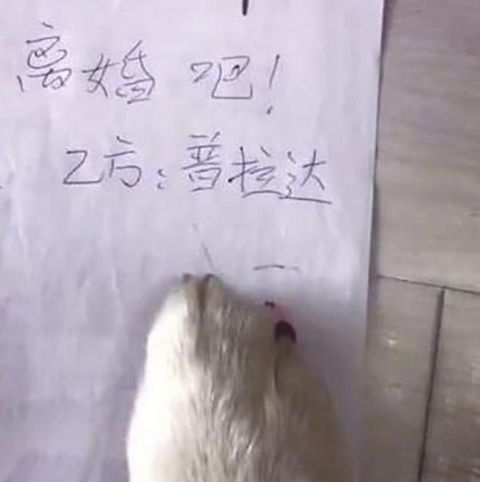 离婚吧!
乙方:普拉达